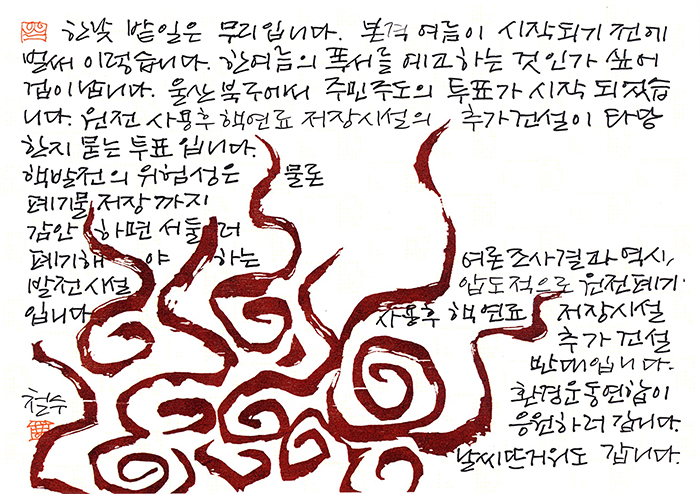 한낮 밭일은 무리입니다. 본격 여름이 시작되기 전에
벌써 이렇습니다. 한여름의 폭서를 예고하는 것인가 싶어
겁이 납니다. 울산 북구에서 주민주도의 투표가 시작 되었습
니다. 원전 사용후 핵연료 저장시설의 추가건설이 타당
한지 묻는 투표 입니다.
핵발전의 위험성은 물론
폐기물 저장 까지
감안 하면 서둘러
폐기해 야 하는
발전시설
입니다
여론조사결과 역시,
압도적으로 원전폐기·
사용후 핵연료 저장시설
추가 건설
반대입니다.
환경운동연합이
응원하러 갑니다.
날씨 뜨거워도 갑니다.
철수